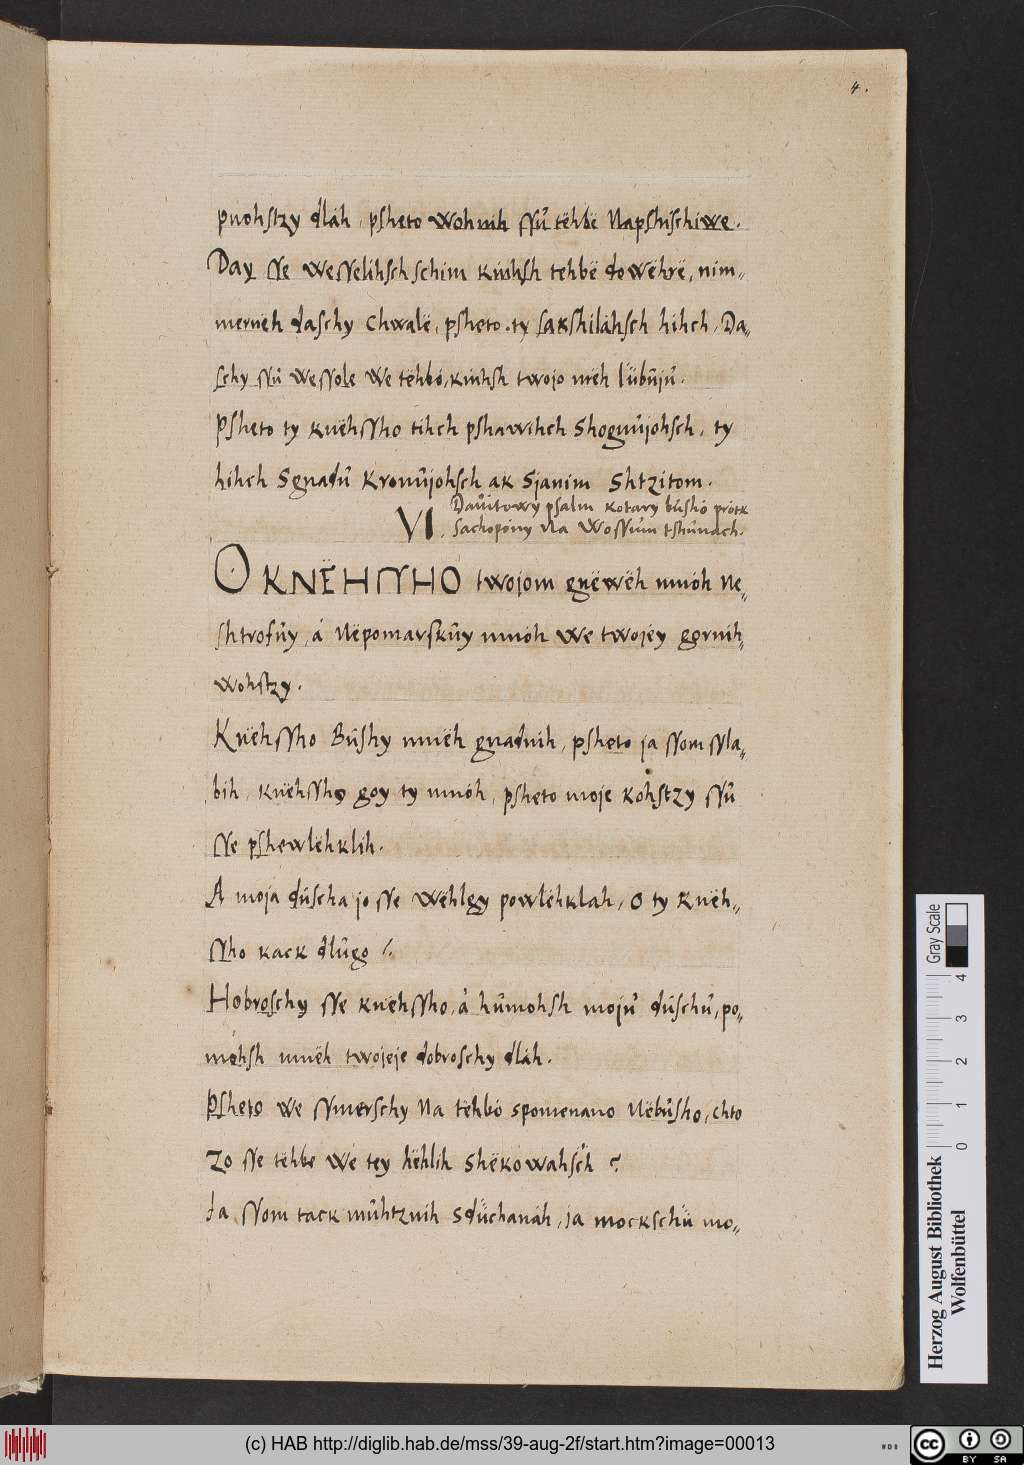 4.
pnohstzy dláh, psheto wohnih ſſů tëhbë Napshischiwe.
Day ſſe weſſelihsch schim kiıhsh tehbë dowëhrë, nim=
mernëh daschy Chwalë, psheto ty sakshiláhsch hihch, Da=
schy ſſů weſſole we tëhbó, kiıhsh twojo mëh lübůjů.
Psheto ty knëhſſho tihch pshawihch shognůjohsch, ty
hihch Sgnadů kronůjohsch ak Sjanim Shtzitom.
VI. Dawitowy psalm kotary bůshó prótk
sachopóny Na Woſſům tshůnach.
O KNËHſſHO twojom gnëwëh mnóh Ne=
shtrofůy, á Nëpomarskůy mnóh we twojéy ggrnih=
wohstzy.
Knëhſſho Bůshy mnëh gnadnih, psheto ja ſſom ſſla=
bih, knëhſſho goy ty mnóh, psheto moje kohstzy ſſů
ſſe pshewlëhklih.
A moja důscha jo ſſe wëhlgy powlëhklah, O ty Knëh=
ſſho kack dlůgo?
Hobroschy ſſe knëhſſho, á hůmohsh mojů důschů, po=
mohsh mnëh twojeje dobroschy dláh.
Psheto we ſſmerschy Na tëhbó spomenano Nëbůsho, chto
zo ſſe tëhbe we tey hëhlih shëkowahsch?
Ja ſſom tack můhtznih sdüchanáh, ja mockschü mo=
Gray Scale
4 3 2 1 0
Herzog August Bibliothek
Wolfenbüttel
(c) HAB http://diglib.hab.de/mss/39-aug-2f/start.htm?image=00013
WDB
cc BY SA